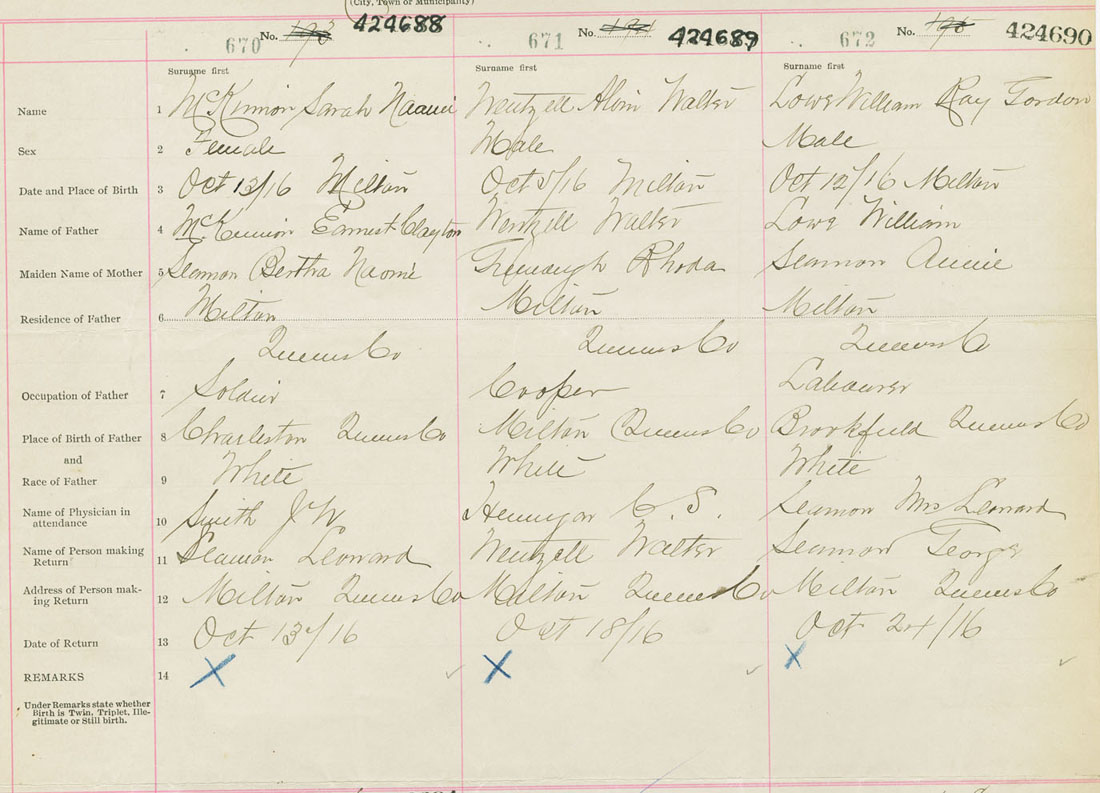 (City, Town or Municipality)
670 No. 424688 671 No. 424689 672 No. 424690
Surname first Surname first Surname first
Name 1 McKinnon Sarah Naomi Wentzell Alvin Walter Lowe William Ray Gordon
Sex 2 Female Male Male
Date and Place of Birth 3 Oct 13/16 Milton Oct 5/16 Milton Oct 12/16 Milton
Name of Father 4 McKinnon Earnest Clayton Wentzell Walter Lowe William
Maiden Name of Mother 5 Seamon Bertha Naomi Rhoda Seamon Annie
Residence of Father 6 Milton Milton Milton
Queens Co Queens Co Queens Co
Occupation of Father 7 Soldier Cooper Labourer
Place of Birth of Father 8 Charleston Queens Co Milton Queens Co Brookfield Queens Co
and
Race of Father 9 White White White
Name of Physician in
attendance 10 Smith J W Hennigar C. S. Seamon Mrs Leonard
Name of Person making
Return 11 Seamon Leonard Wentzell Walter Seamon George
Address of Person mak-
ing Return 12 Milton Queens Co Milton Queens Co Milton Queens Co
Date of Return 13 Oct 13/16 Oct 18/16 Oct 24/16
REMARKS 14 X X X
Under Remarks state whether
Birth is Twin, Triplet, Ille-
gitimate or Still birth.